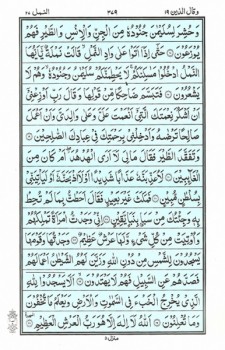 النمل ٢٧ ٣٤٩ وقال الذين ١٩
وَحُشِرَ لِسُلَيْمٰنَ جُنُوْدُهٗ مِنَ الْجِنِّ وَالْاِنْسِ وَالطَّيْرِ فَهُمْ
يُوْزَعُوْنَ ۝ حَتّٰۤى اِذَاۤ اَتَوْا عَلٰى وَادِ النَّمْلِ قَالَتْ نَمْلَةٌ يّٰۤاَيُّهَا
النَّمْلُ ادْخُلُوْا مَسٰكِنَكُمْ لَا يَحْطِمَنَّكُمْ سُلَيْمٰنُ وَجُنُوْدُهٗ وَهُمْ لَا
يَشْعُرُوْنَ ۝ فَتَبَسَّمَ ضَاحِكًا مِّنْ قَوْلِهَا وَقَالَ رَبِّ اَوْزِعْنِيْۤ
اَنْ اَشْكُرَ نِعْمَتَكَ الَّتِيْۤ اَنْعَمْتَ عَلَيَّ وَعَلٰى وَالِدَيَّ وَاَنْ اَعْمَلَ
صَالِحًا تَرْضٰىهُ وَاَدْخِلْنِيْ بِرَحْمَتِكَ فِيْ عِبَادِكَ الصّٰلِحِيْنَ ۝
وَتَفَقَّدَ الطَّيْرَ فَقَالَ مَا لِيَ لَاۤ اَرَى الْهُدْهُدَ اَمْ كَانَ مِنَ
الْغَآئِبِيْنَ ۝ لَاُعَذِّبَنَّهٗ عَذَابًا شَدِيْدًا اَوْ لَاۡاَذْبَحَنَّهٗۤ اَوْ لَيَاْتِيَنِّيْ
بِسُلْطٰنٍ مُّبِيْنٍ ۝ فَمَكَثَ غَيْرَ بَعِيْدٍ فَقَالَ اَحَطْتُّ بِمَا لَمْ تُحِطْ
بِهٖ وَجِئْتُكَ مِنْ سَبَاٍۭ بِنَبَاٍ يَّقِيْنٍ ۝ اِنِّيْ وَجَدْتُّ امْرَاَةً تَمْلِكُهُمْ
وَاُوْتِيَتْ مِنْ كُلِّ شَيْءٍ وَّلَهَا عَرْشٌ عَظِيْمٌ ۝ وَجَدْتُّهَا وَقَوْمَهَا
يَسْجُدُوْنَ لِلشَّمْسِ مِنْ دُوْنِ اللّٰهِ وَزَيَّنَ لَهُمُ الشَّيْطٰنُ اَعْمَالَهُمْ
فَصَدَّهُمْ عَنِ السَّبِيْلِ فَهُمْ لَا يَهْتَدُوْنَ ۝ اَلَّا يَسْجُدُوْا لِلّٰهِ
الَّذِيْ يُخْرِجُ الْخَبْءَ فِي السَّمٰوٰتِ وَالْاَرْضِ وَيَعْلَمُ مَا تُخْفُوْنَ
وَمَا تُعْلِنُوْنَ ۝ اَللّٰهُ لَاۤ اِلٰهَ اِلَّا هُوَ رَبُّ الْعَرْشِ الْعَظِيْمِ ۝
منزل ٥